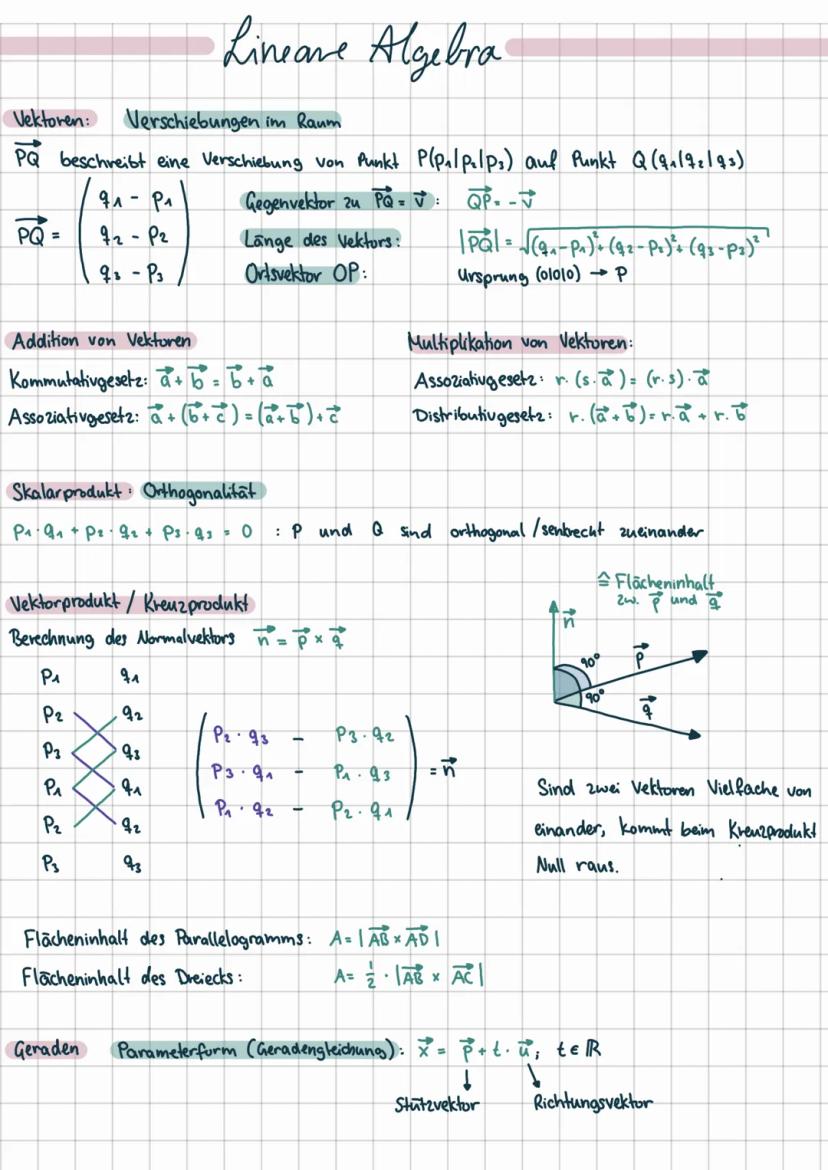 Lineare Algebra
Vektoren: Verschiebungen im Raum
PQ⃗ beschreibt eine Verschiebung von Punkt P(p₁|p₂|p₃) auf Punkt Q(q₁|q₂|q₃)
q₁ - p₁
PQ⃗ = q₂ - p₂
q₃ - p₃
Gegenvektor zu PQ⃗ = v⃗: QP⃗ = -v⃗
Länge des Vektors: |PQ⃗| = √(q₁-p₁)²+(q₂-p₂)²+(q₃-p₃)²
Ortsvektor OP: Ursprung (0|0|0) → P
Addition von Vektoren
Kommutativgesetz: a⃗ + b⃗ = b⃗ + a⃗
Assoziativgesetz: a⃗ + (b⃗ + c⃗) = (a⃗ + b⃗) + c⃗
Multiplikation von Vektoren:
Assoziativgesetz: r·(s·a⃗) = (r·s)·a⃗
Distributivgesetz: r·(a⃗ + b⃗) = r·a⃗ + r·b⃗
Skalarprodukt: Orthogonalität
p₁·q₁ + p₂·q₂ + p₃·q₃ = 0 : P und Q sind orthogonal/senkrecht zueinander
Vektorprodukt / Kreuzprodukt
Berechnung des Normalvektors n⃗ = p⃗ × q⃗
P₁ q₁
P₂ q₂
P₃ q₃
P₁ q₁
P₂ q₂
P₃ q₃
P₂·q₃ - P₃·q₂
P₃·q₁ - P₁·q₃ = n⃗
P₁·q₂ - P₂·q₁
≙ Flächeninhalt
zw. p⃗ und q⃗
n⃗
90° p⃗
90° q⃗
Sind zwei Vektoren Vielfache von
einander, kommt beim Kreuzprodukt
Null raus.
Flächeninhalt des Parallelogramms: A = |AB⃗ × AD⃗|
Flächeninhalt des Dreiecks: A = 1/2 · |AB⃗ × AC⃗|
Geraden Parameterform (Geradengleichung): x⃗ = p⃗ + t·u⃗; t ∈ ℝ
Stützvektor Richtungsvektor